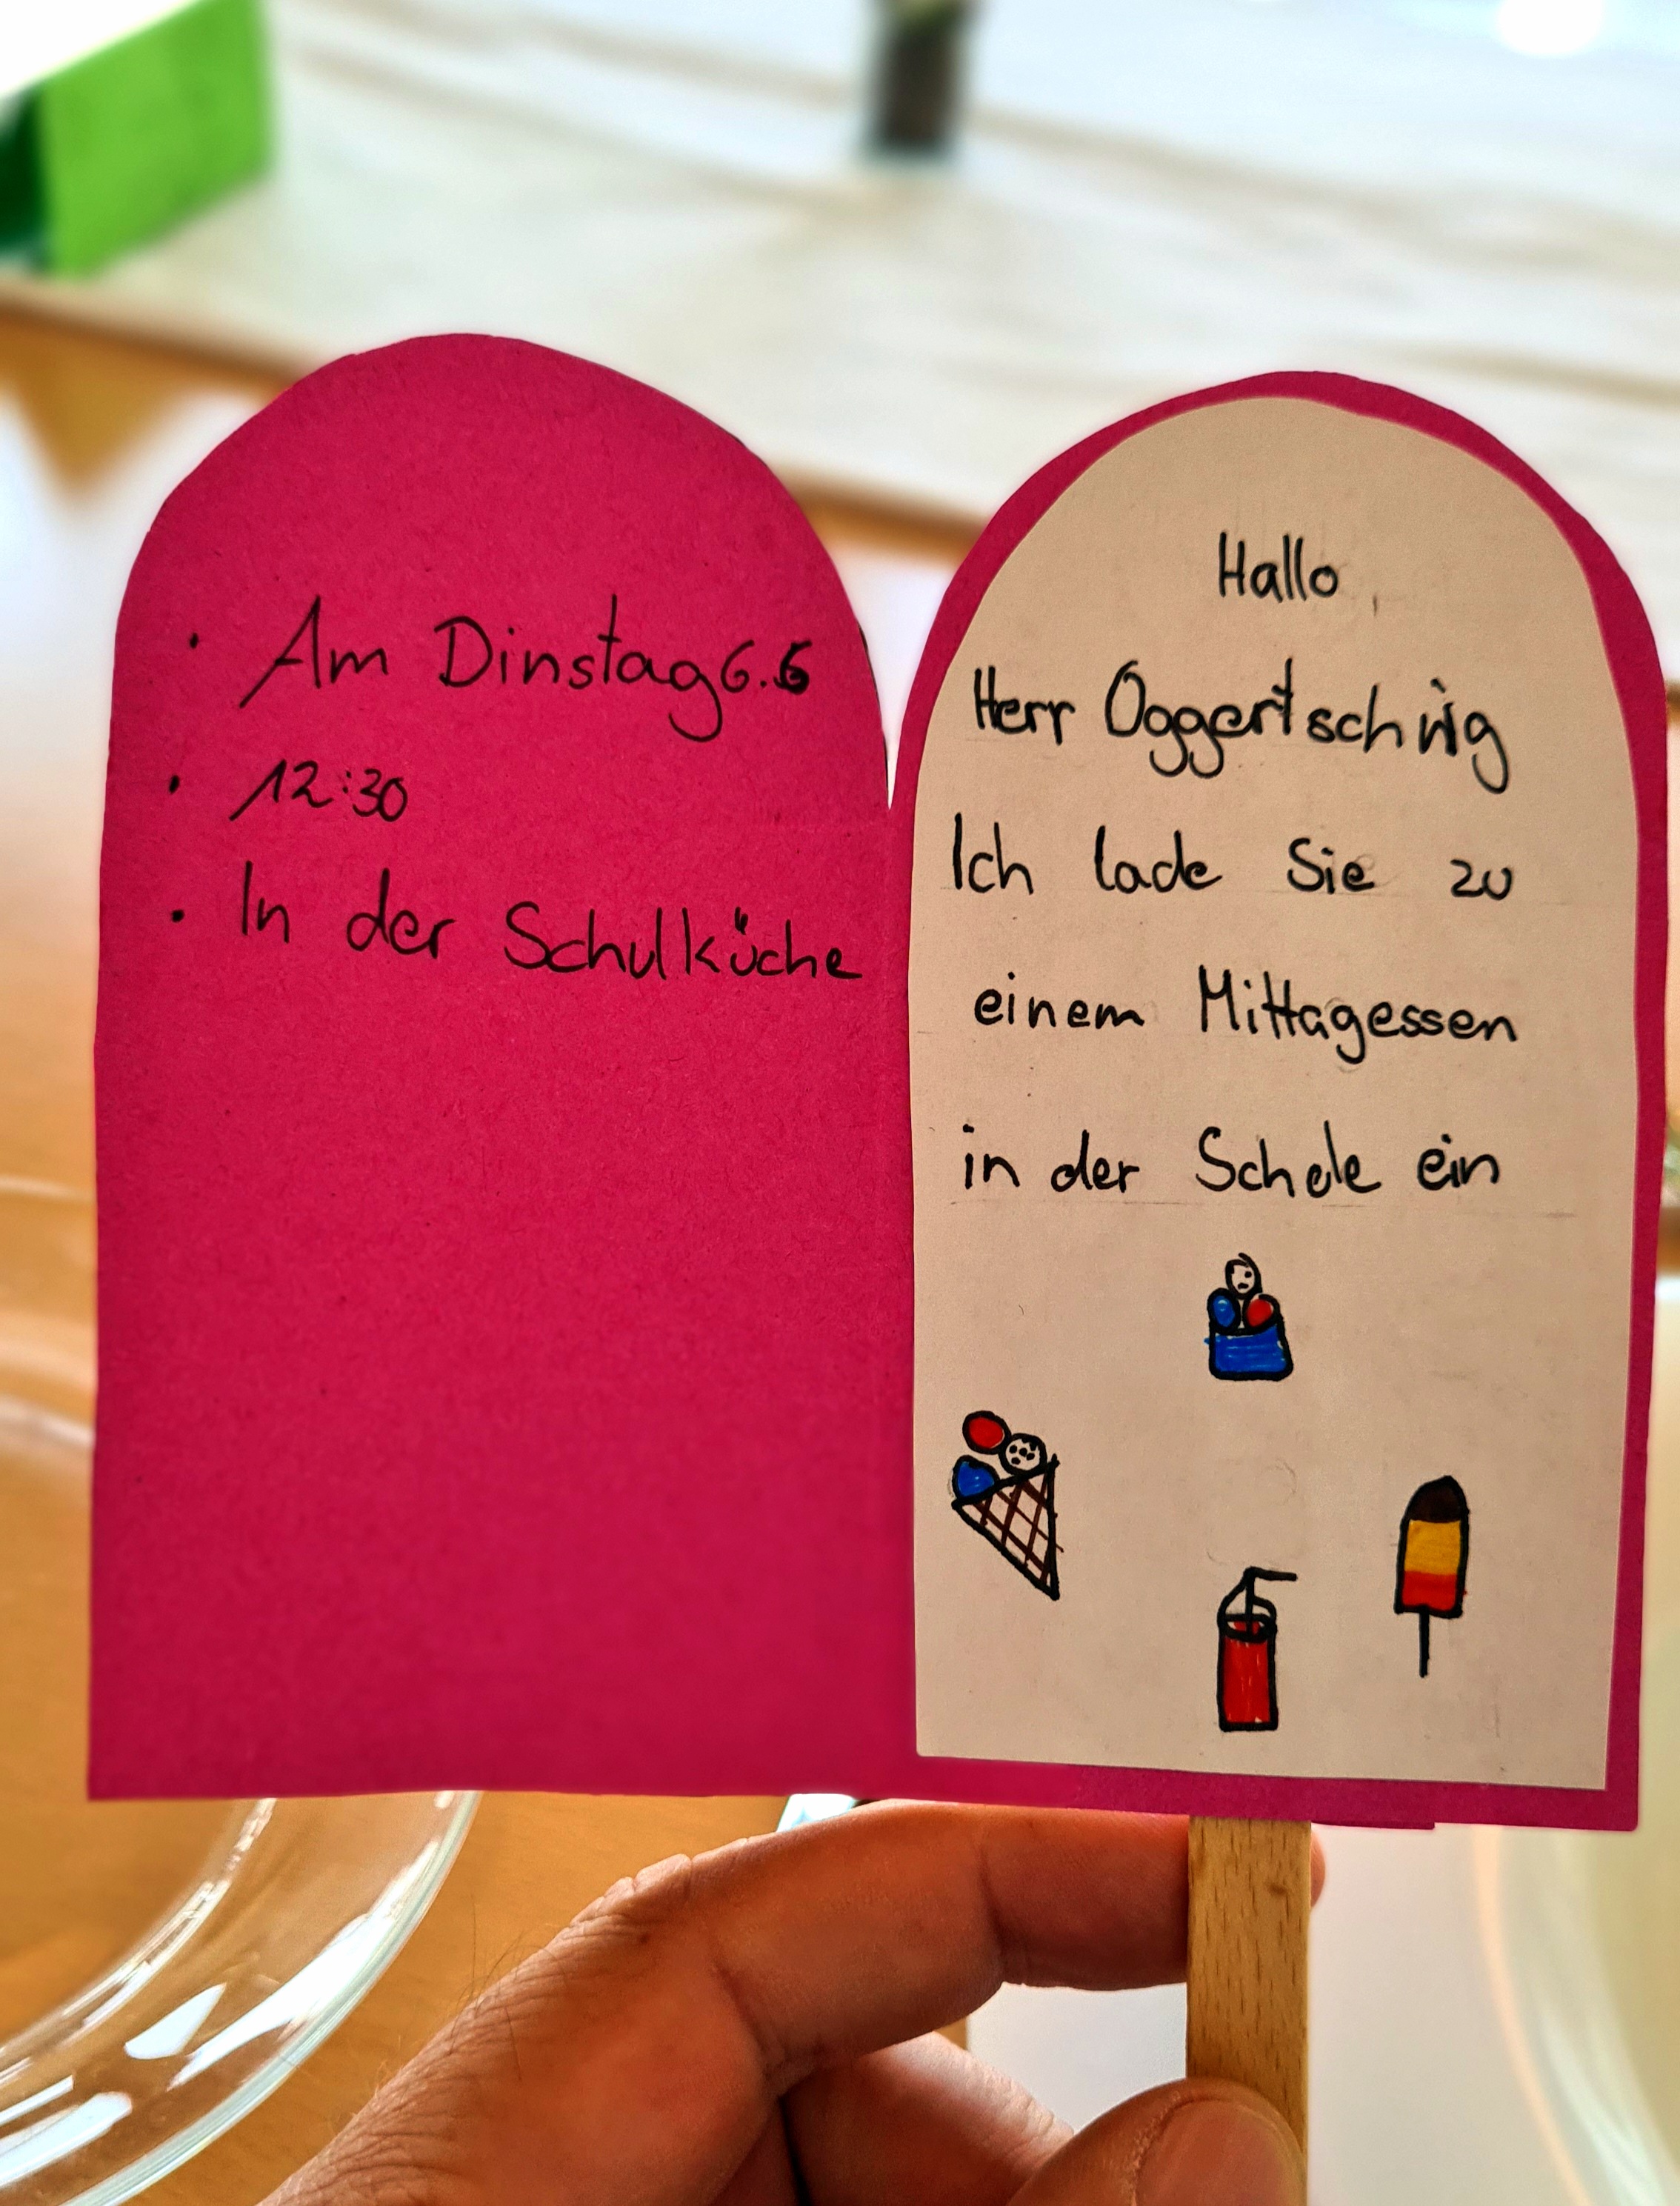 · Am Dinstag 6.6
· 12:30
· In der Schulküche
Hallo,
Herr Oggertschnig
Ich lade Sie zu
einem Mittagessen
in der Schule ein